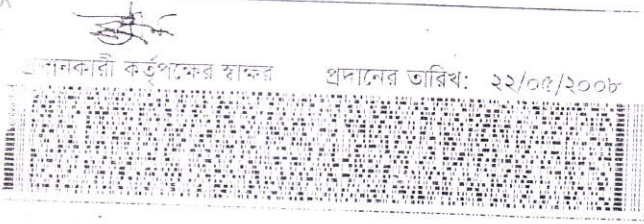 প্রদানকারী কর্তৃপক্ষের স্বাক্ষর প্রদানের তারিখ: ২২/০৫/২০০৮